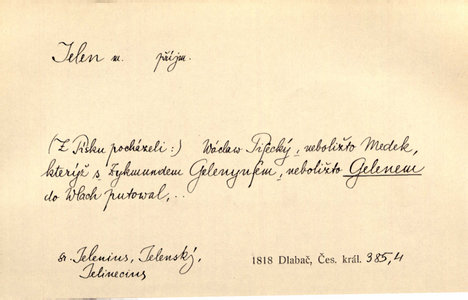 Jelen m. příjm.
(Z Písku pocházeli:) Wáclaw Pisecký, neboližto Medek,
kterýž s Zykmundem Gelenynsem, neboližto Gelenem
do Wlach putowal, ..
sr. Jelenius, Jelenský,
Jelinecius
1818 Dlabač, Čes. král. 385,4